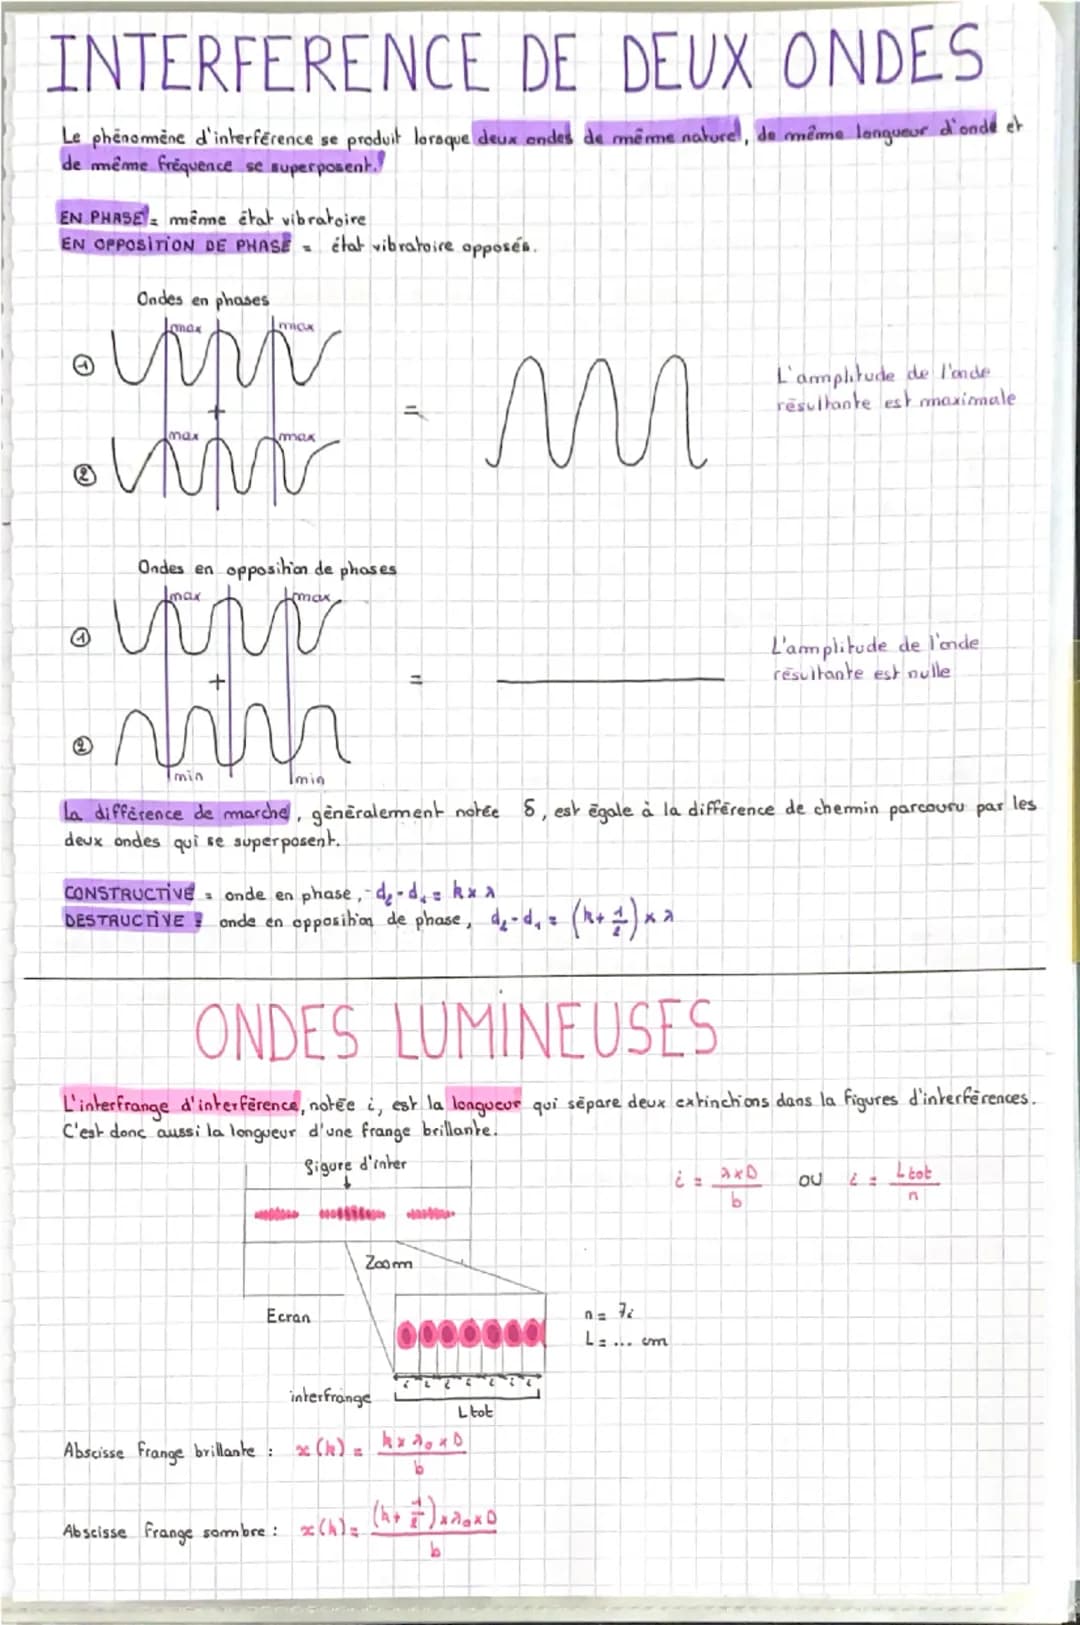 INTERFERENCE DE DEUX ONDES
Le phénomène d'interférence se produit lorsque deux ondes de même nature, de même longueur d'onde et
de même fréquence se superposent.
EN PHASE = même état vibratoire
EN OPPOSITION DE PHASE = état vibratoire opposés.
Ondes en phases
max max
1
+
=
L'amplitude de l'onde
résultante est maximale
max max
2
Ondes en opposition de phases
max max
1
+
=
L'amplitude de l'onde
résultante est nulle
2
min min
La différence de marche, généralement notée δ, est égale à la différence de chemin parcouru par les
deux ondes qui se superposent.
CONSTRUCTIVE = onde en phase, d₂-d₁ = k x λ
DESTRUCTIVE = onde en opposition de phase, d₂-d₁ = (k+1/2) x λ
ONDES LUMINEUSES
L'interfrange d'interférence, notée i, est la longueur qui sépare deux extinctions dans la figures d'interférences.
C'est donc aussi la longueur d'une frange brillante.
figure d'inter
i = λxD/b ou i = Ltot/n
Zoom
Ecran
n = 7i
L = ... cm
i i i i i i i
interfrange
Ltot
Abscisse frange brillante : x(k) = k x λ₀ x D / b
Abscisse frange sombre : x(k) = (k+1/2) x λ₀ x D / b